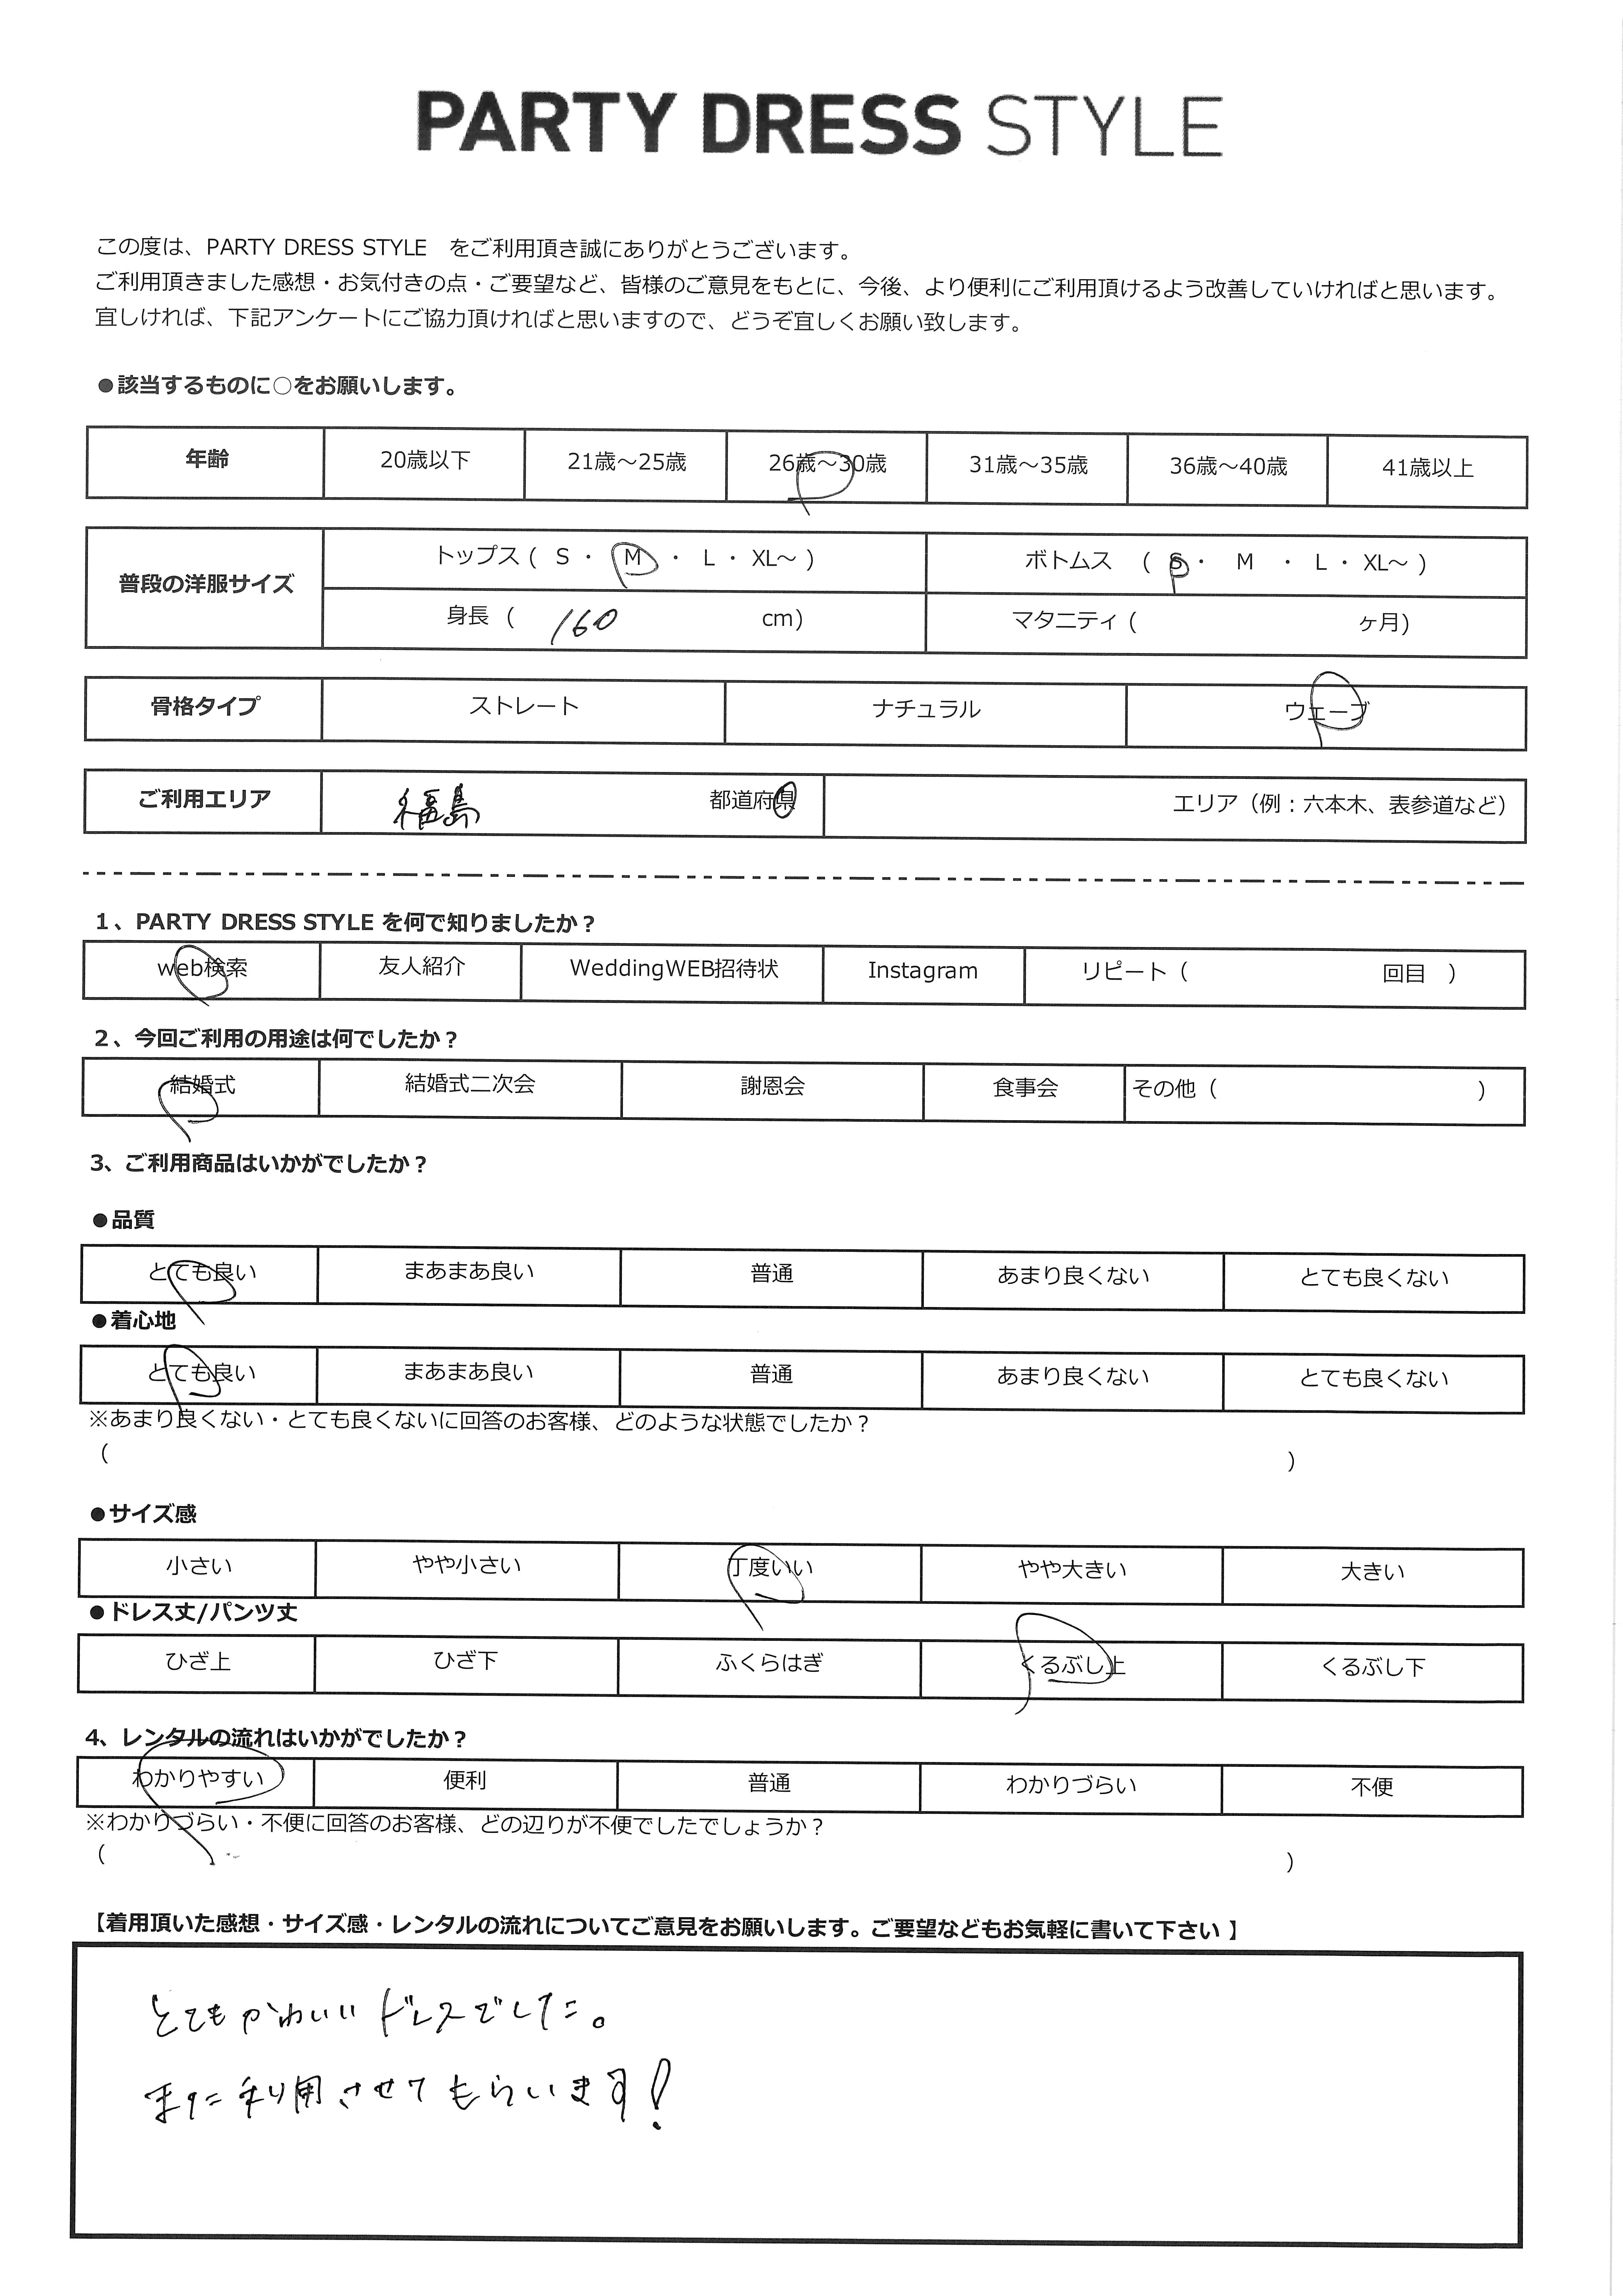 PARTY DRESS STYLE
この度は、PARTY DRESS STYLE をご利用頂き誠にありがとうございます。
ご利用頂きました感想・お気付きの点・ご要望など、皆様のご意見をもとに、今後、より便利にご利用頂けるよう改善していければと思います。
宜しければ、下記アンケートにご協力頂ければと思いますので、どうぞ宜しくお願い致します。
●該当するものに○をお願いします。
年齢 20歳以下 21歳～25歳 26歳～30歳 31歳～35歳 36歳～40歳 41歳以上
普段の洋服サイズ
トップス ( S ・ M ・ L ・ XL～ ) ボトムス ( S ・ M ・ L ・ XL～ )
身長 ( 160 cm) マタニティ ( ヶ月)
骨格タイプ ストレート ナチュラル ウェーブ
ご利用エリア 福島 都道府県 エリア（例：六本木、表参道など）
1、PARTY DRESS STYLE を何で知りましたか？
web検索 友人紹介 WeddingWEB招待状 Instagram リピート（ 回目 ）
2、今回ご利用の用途は何でしたか？
結婚式 結婚式二次会 謝恩会 食事会 その他（ ）
3、ご利用商品はいかがでしたか？
●品質
とても良い まあまあ良い 普通 あまり良くない とても良くない
●着心地
とても良い まあまあ良い 普通 あまり良くない とても良くない
※あまり良くない・とても良くないに回答のお客様、どのような状態でしたか？
( )
●サイズ感
小さい やや小さい 丁度いい やや大きい 大きい
●ドレス丈/パンツ丈
ひざ上 ひざ下 ふくらはぎ くるぶし上 くるぶし下
4、レンタルの流れはいかがでしたか？
わかりやすい 便利 普通 わかりづらい 不便
※わかりづらい・不便に回答のお客様、どの辺りが不便でしたでしょうか？
( )
【着用頂いた感想・サイズ感・レンタルの流れについてご意見をお願いします。ご要望などもお気軽に書いて下さい 】
とてもかわいいドレスでした。
また利用させてもらいます！